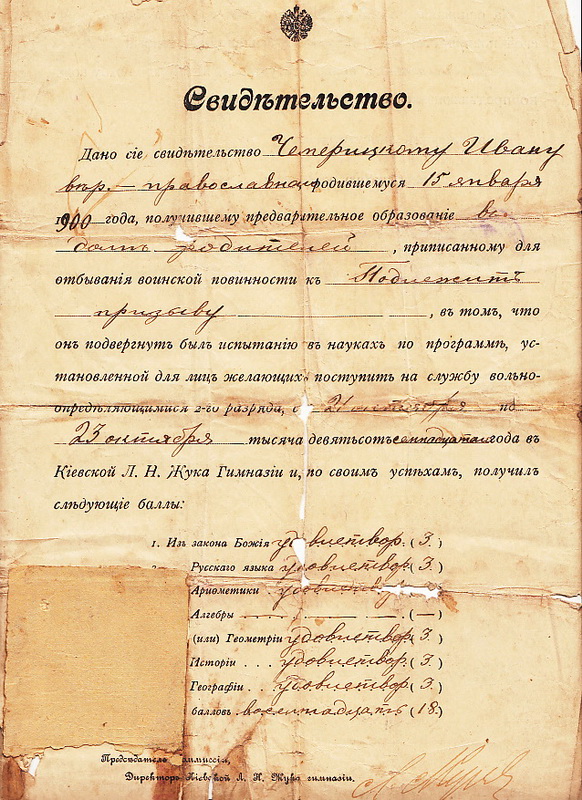 Свидѣтельство.
Дано сіе свидѣтельство Чеперицкому Ивану
вѣр. – православна родившемуся 15 января
1900 года, получившему предварительное образованіе въ
домѣ родителей, приписанному для
отбыванія воинской повинности къ Подлежитъ
призыву, въ томъ, что
онъ подвергнутъ былъ испытанію въ наукахъ по программѣ, ус-
тановленной для лицъ желающихъ поступить на службу вольно-
опредѣляющимися 2-го разряда, с 21 октября по
23 октября тысяча девятьсотъ семнадцатаго года в
Кіевской Л. Н. Жука Гимназіи и, по своимъ успѣхамъ, получил
слѣдующіе баллы:
1. Изъ закона Божія удовлетвор. (3.)
Русскаго языка удовлетвор. (3.)
Ариѳметики удовлетвор
Алгебры (—)
(или) Геометріи удовлетвор. (3.)
Исторіи . . . удовлетвор. (3.)
Географіи . . удовлетвор. (3.)
балловъ восемнадцать (18.)
Предсѣдатель оммиссіи,
Директоръ Кіевской Л. Н. Жука гимназіи.